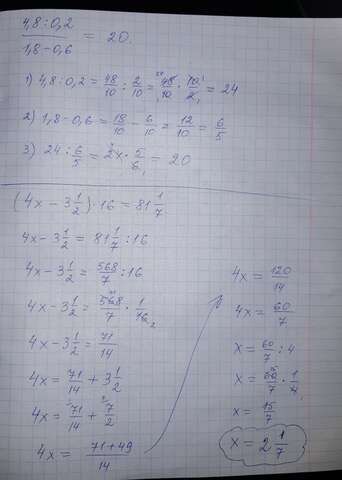 4,8 : 0,2 / 1,8 - 0,6 = 20.
1) 4,8 : 0,2 = 48/10 : 2/10 = 48/10 · 10/2 = 24
2) 1,8 - 0,6 = 18/10 - 6/10 = 12/10 = 6/5
3) 24 : 6/5 = 24 · 5/6 = 20
(4x - 3 1/2) · 16 = 81 1/7
4x - 3 1/2 = 81 1/7 : 16
4x - 3 1/2 = 568/7 : 16
4x - 3 1/2 = 568/7 · 1/16
4x - 3 1/2 = 71/14
4x = 71/14 + 3 1/2
4x = 71/14 + 7/2
4x = 71+49/14
4x = 120/14
4x = 60/7
x = 60/7 : 4
x = 60/7 · 1/4
x = 15/7
x = 2 1/7